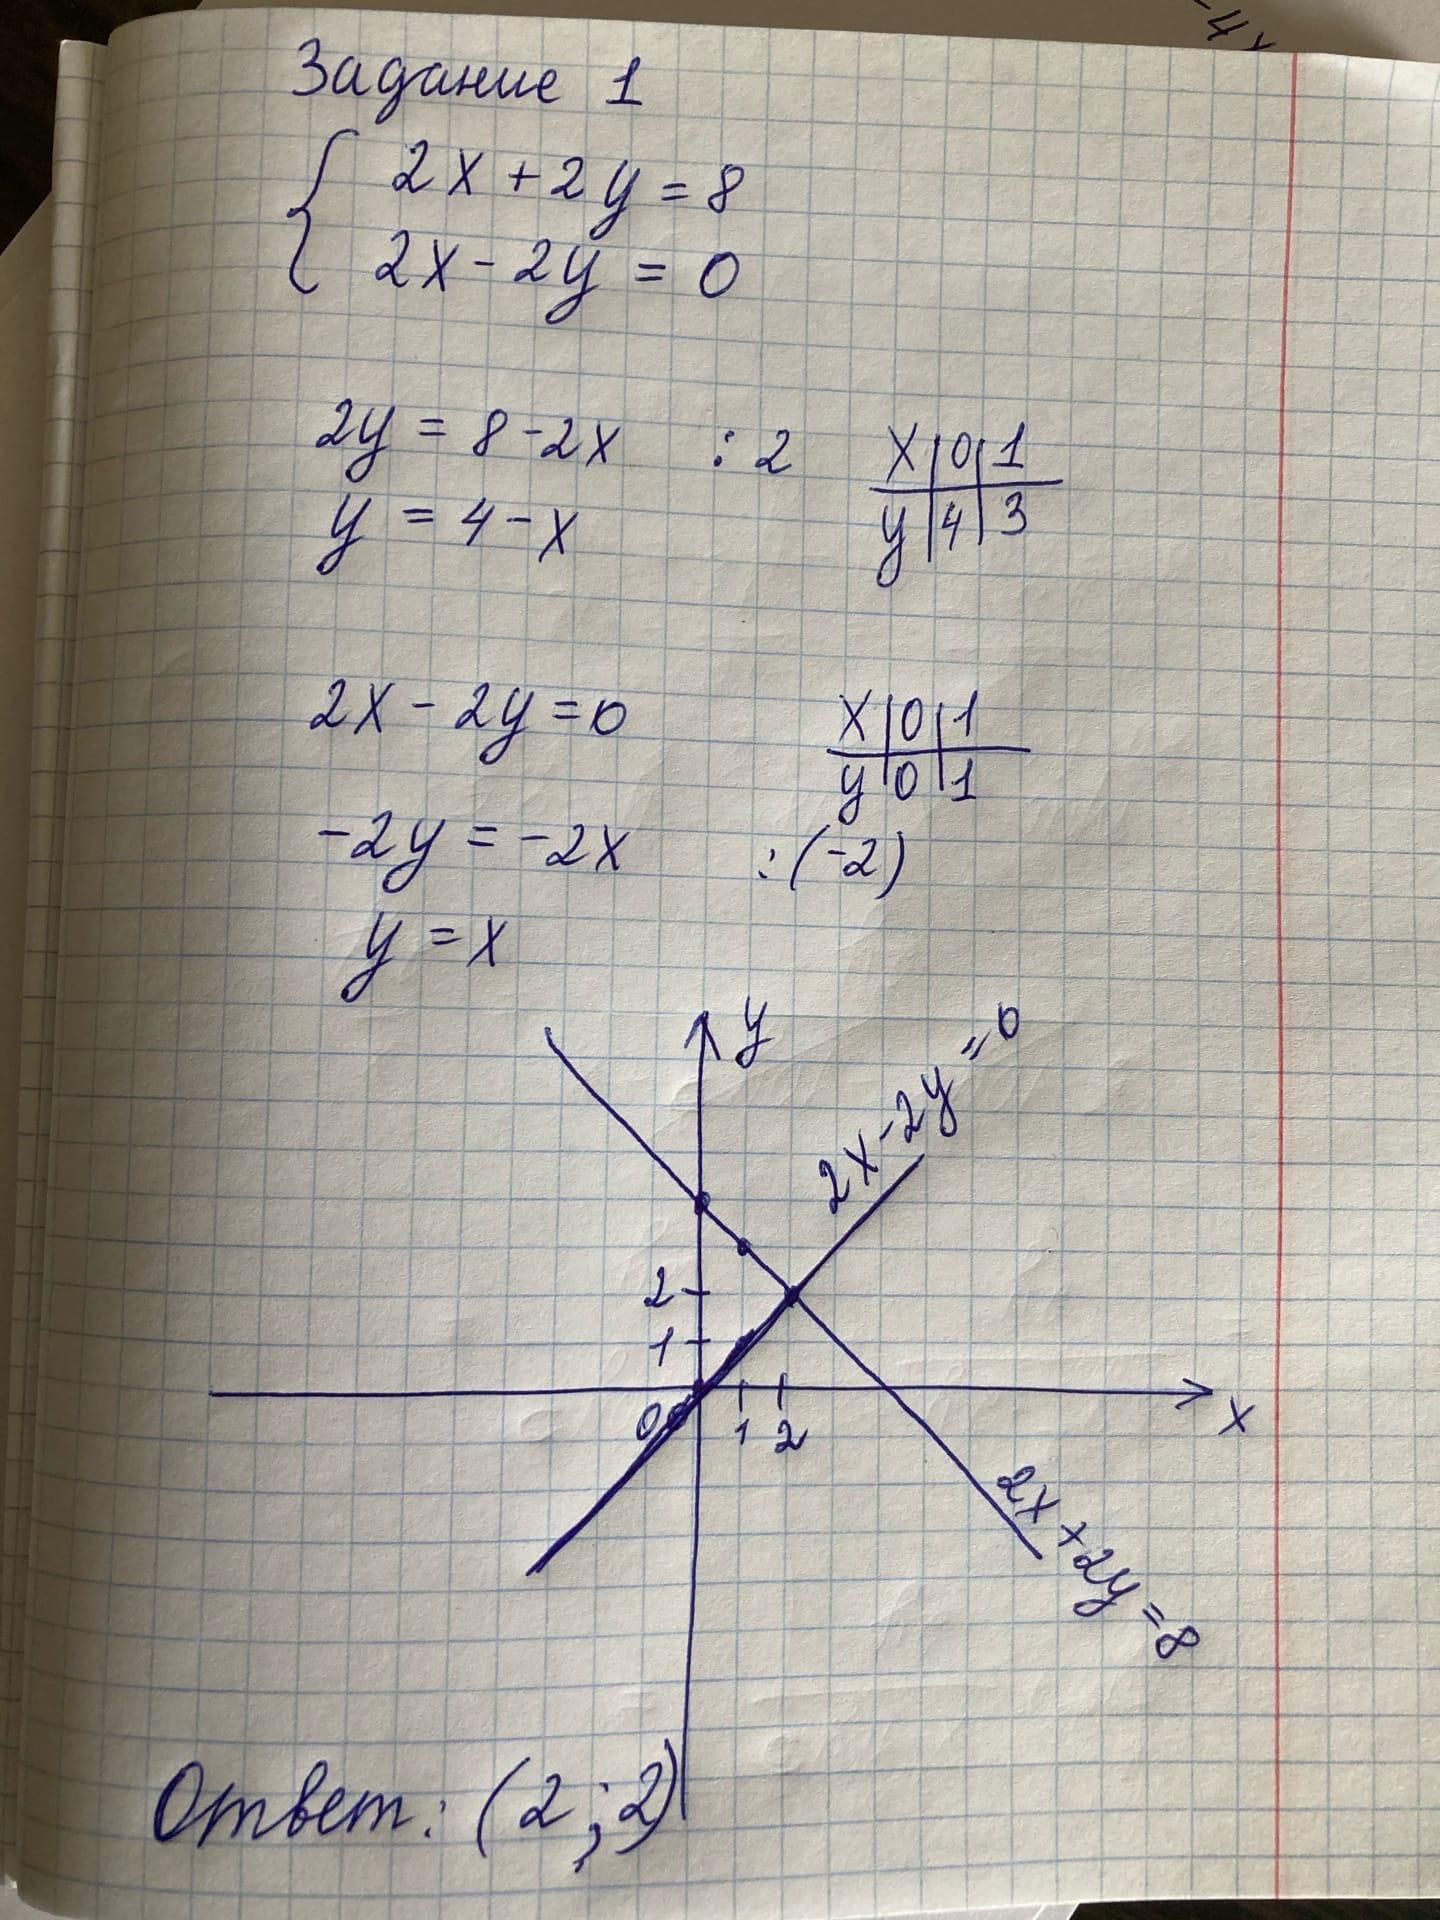 -4x
Задание 1
{ 2x+2y=8
2x-2y=0
2y=8-2x :2
y=4-x
x|0|1
y|4|3
2x-2y=0
x|0|1
y|0|1
-2y=-2x :(-2)
y=x
y
2x-2y=0
2
1
0
1 2
x
2x+2y=8
Ответ: (2;2)